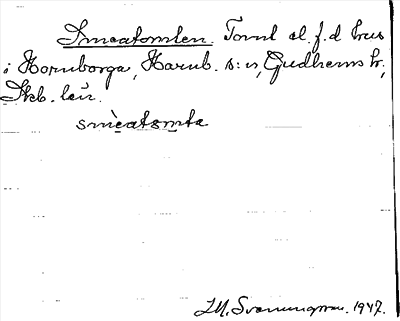 Smeatomten. Tomt el. f.d. hus
i Hornborga, Hornb. s:n, Gudhems hd,
Skb. län.
smèatɷmta
M. Svanungson. 1947.